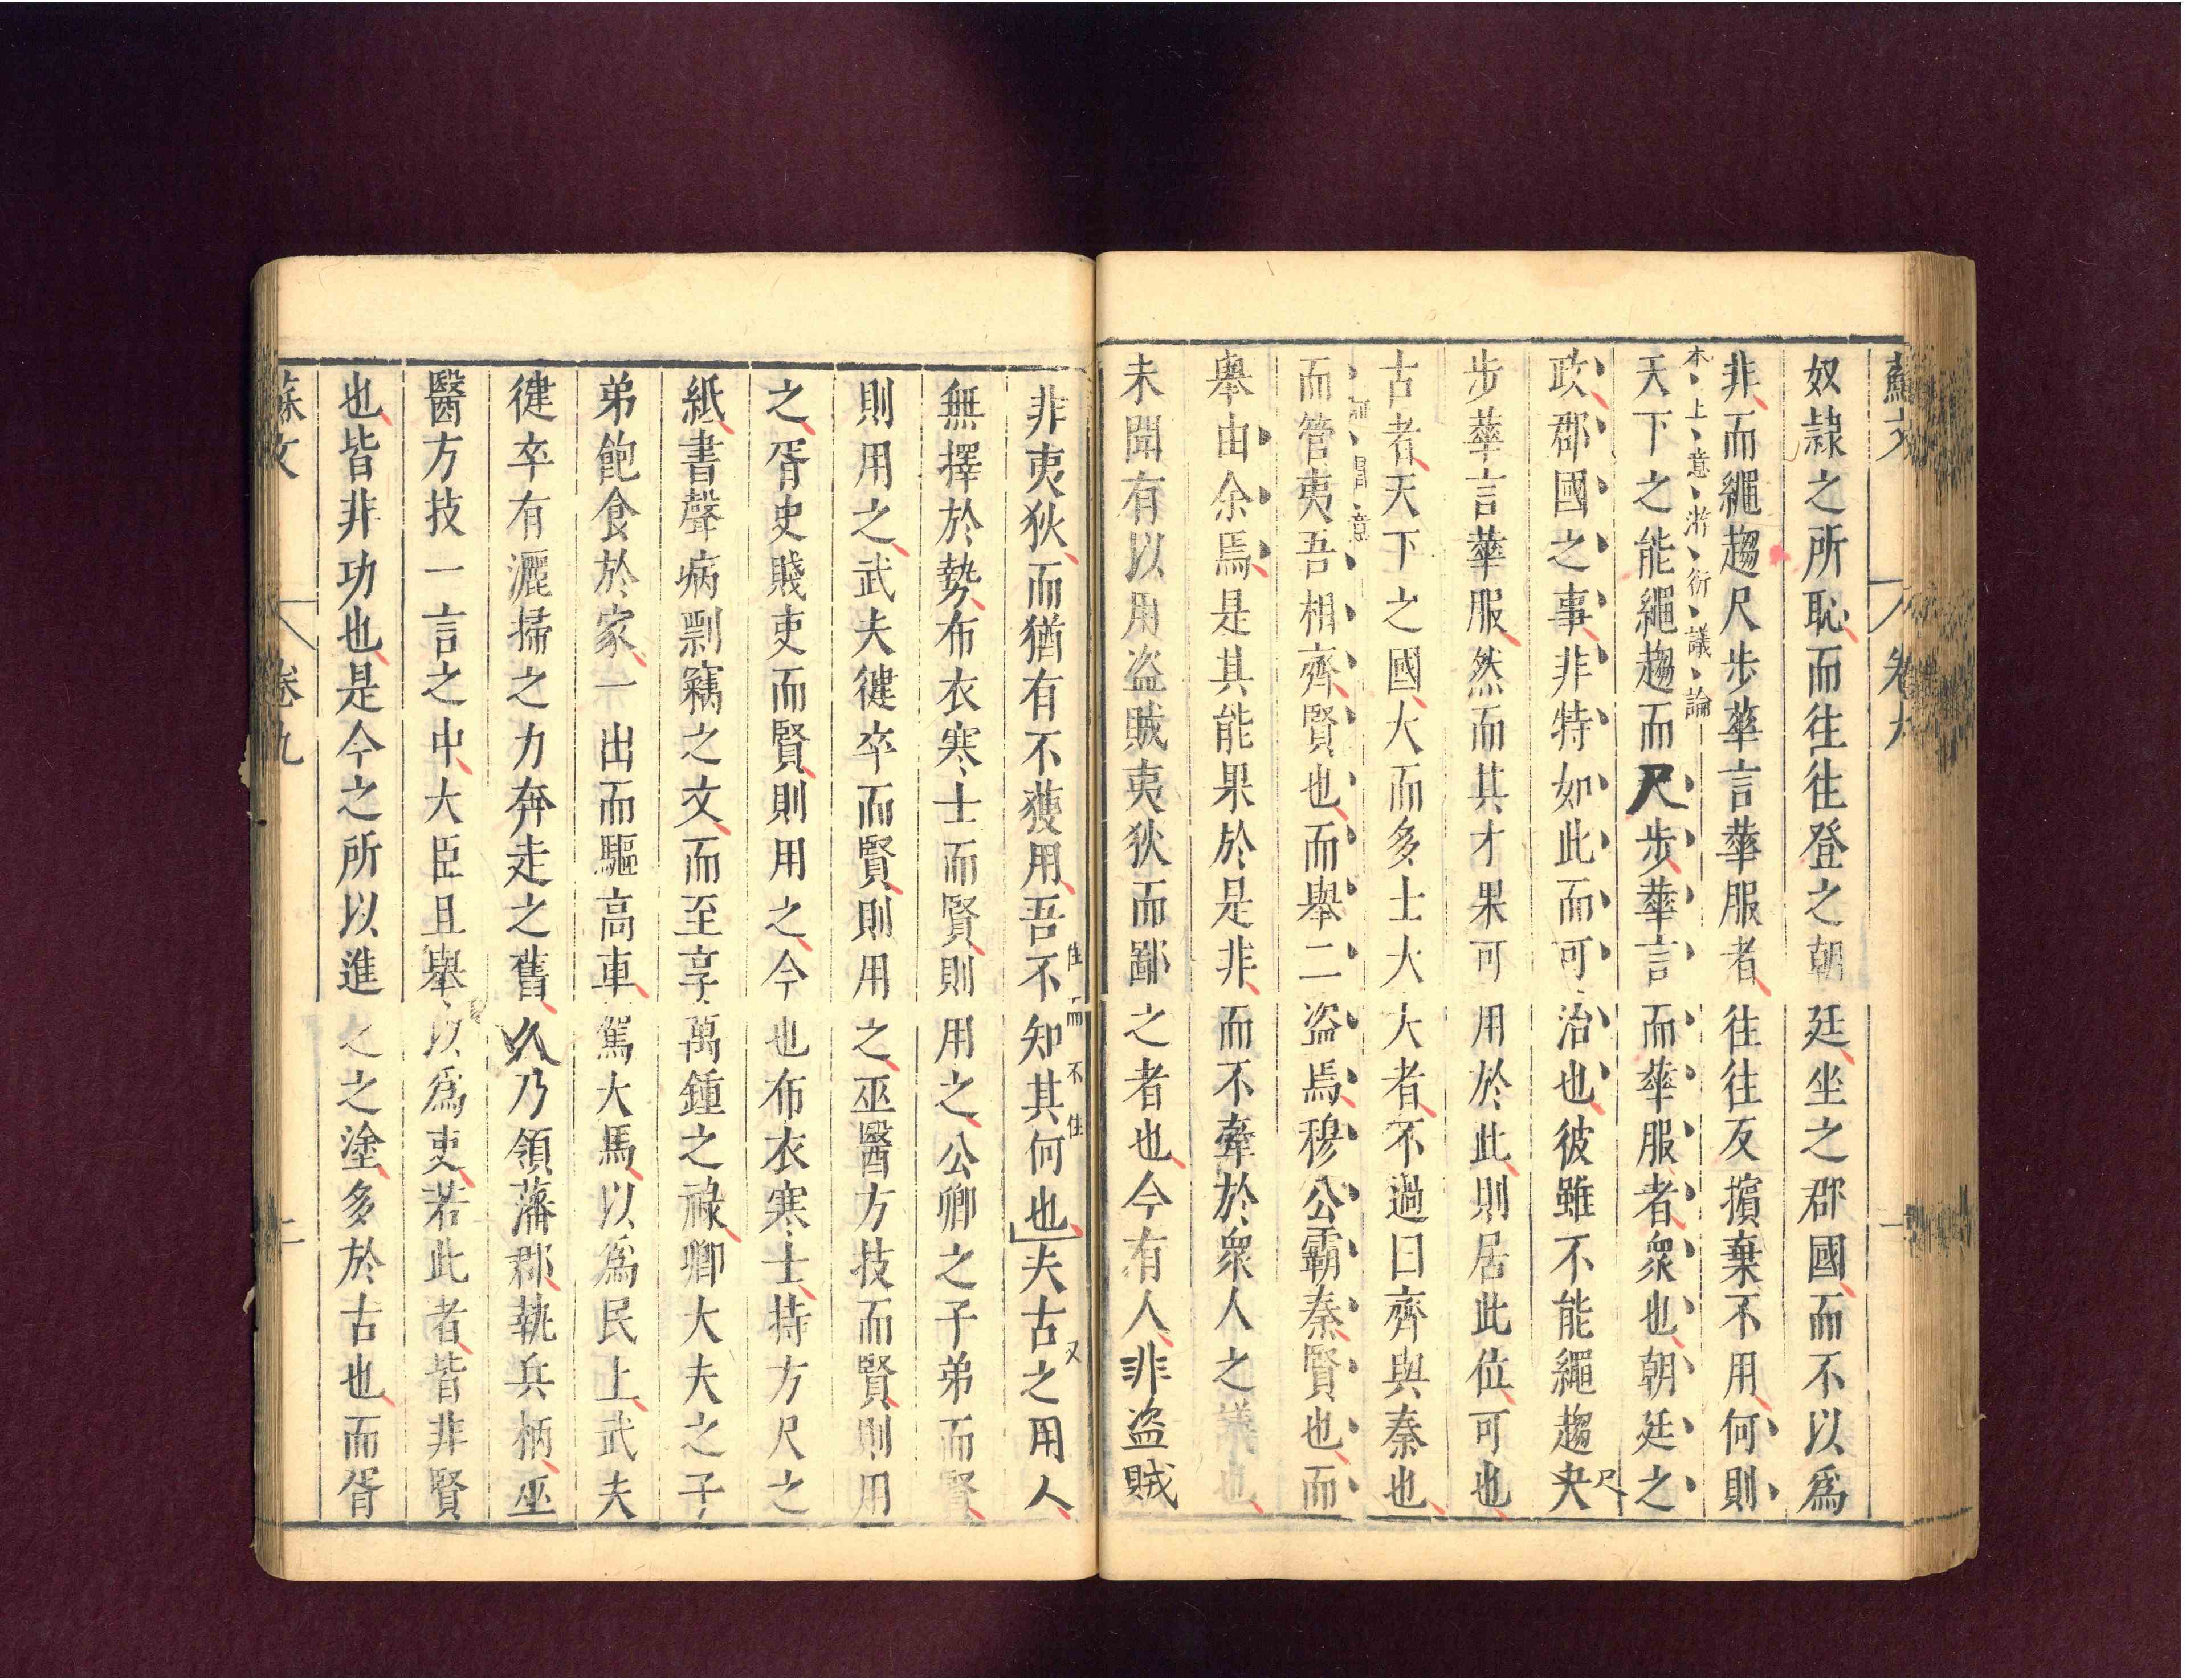 蘇文 卷九 一
奴隷之所恥而往往登之朝廷坐之郡國而不以爲
非而繩趨尺步華言華服者往往反擯棄不用何則
本上意滸衍議論
天下之能繩趨而尺步華言而華服者衆也朝廷之
政郡國之事非特如此而可治也彼雖不能繩趨尺
步華言華服然而其才果可用於此則居此位可也
古者天下之國大而多士大夫者不過曰齊與秦也
而管夷吾相齊賢也而舉二盗焉穆公霸秦賢也而
舉由余焉是其能果於是非而不牽於衆人之議也
未聞有以用盗賊夷狄而鄙之者也今有人非盗賊
非夷狄而猶有不獲用吾不知其何也夫古之用人
住而不住
又
無擇於勢布衣寒士而賢則用之公卿之子弟而賢
則用之武夫徤卒而賢則用之巫醫方技而賢則用
之胥史賤吏而賢則用之今也布衣寒士持方尺之
紙書聲病剽竊之文而至享萬鍾之祿卿大夫之子
弟飽食於家一出而驅高車駕大馬以爲民上武夫
徤卒有灑掃之力奔走之舊久乃領藩郡執兵柄巫
醫方技一言之中大臣且舉以爲吏若此者皆非賢
也皆非功也是今之所以進之之塗多於古也而胥
蘇文 卷九 二